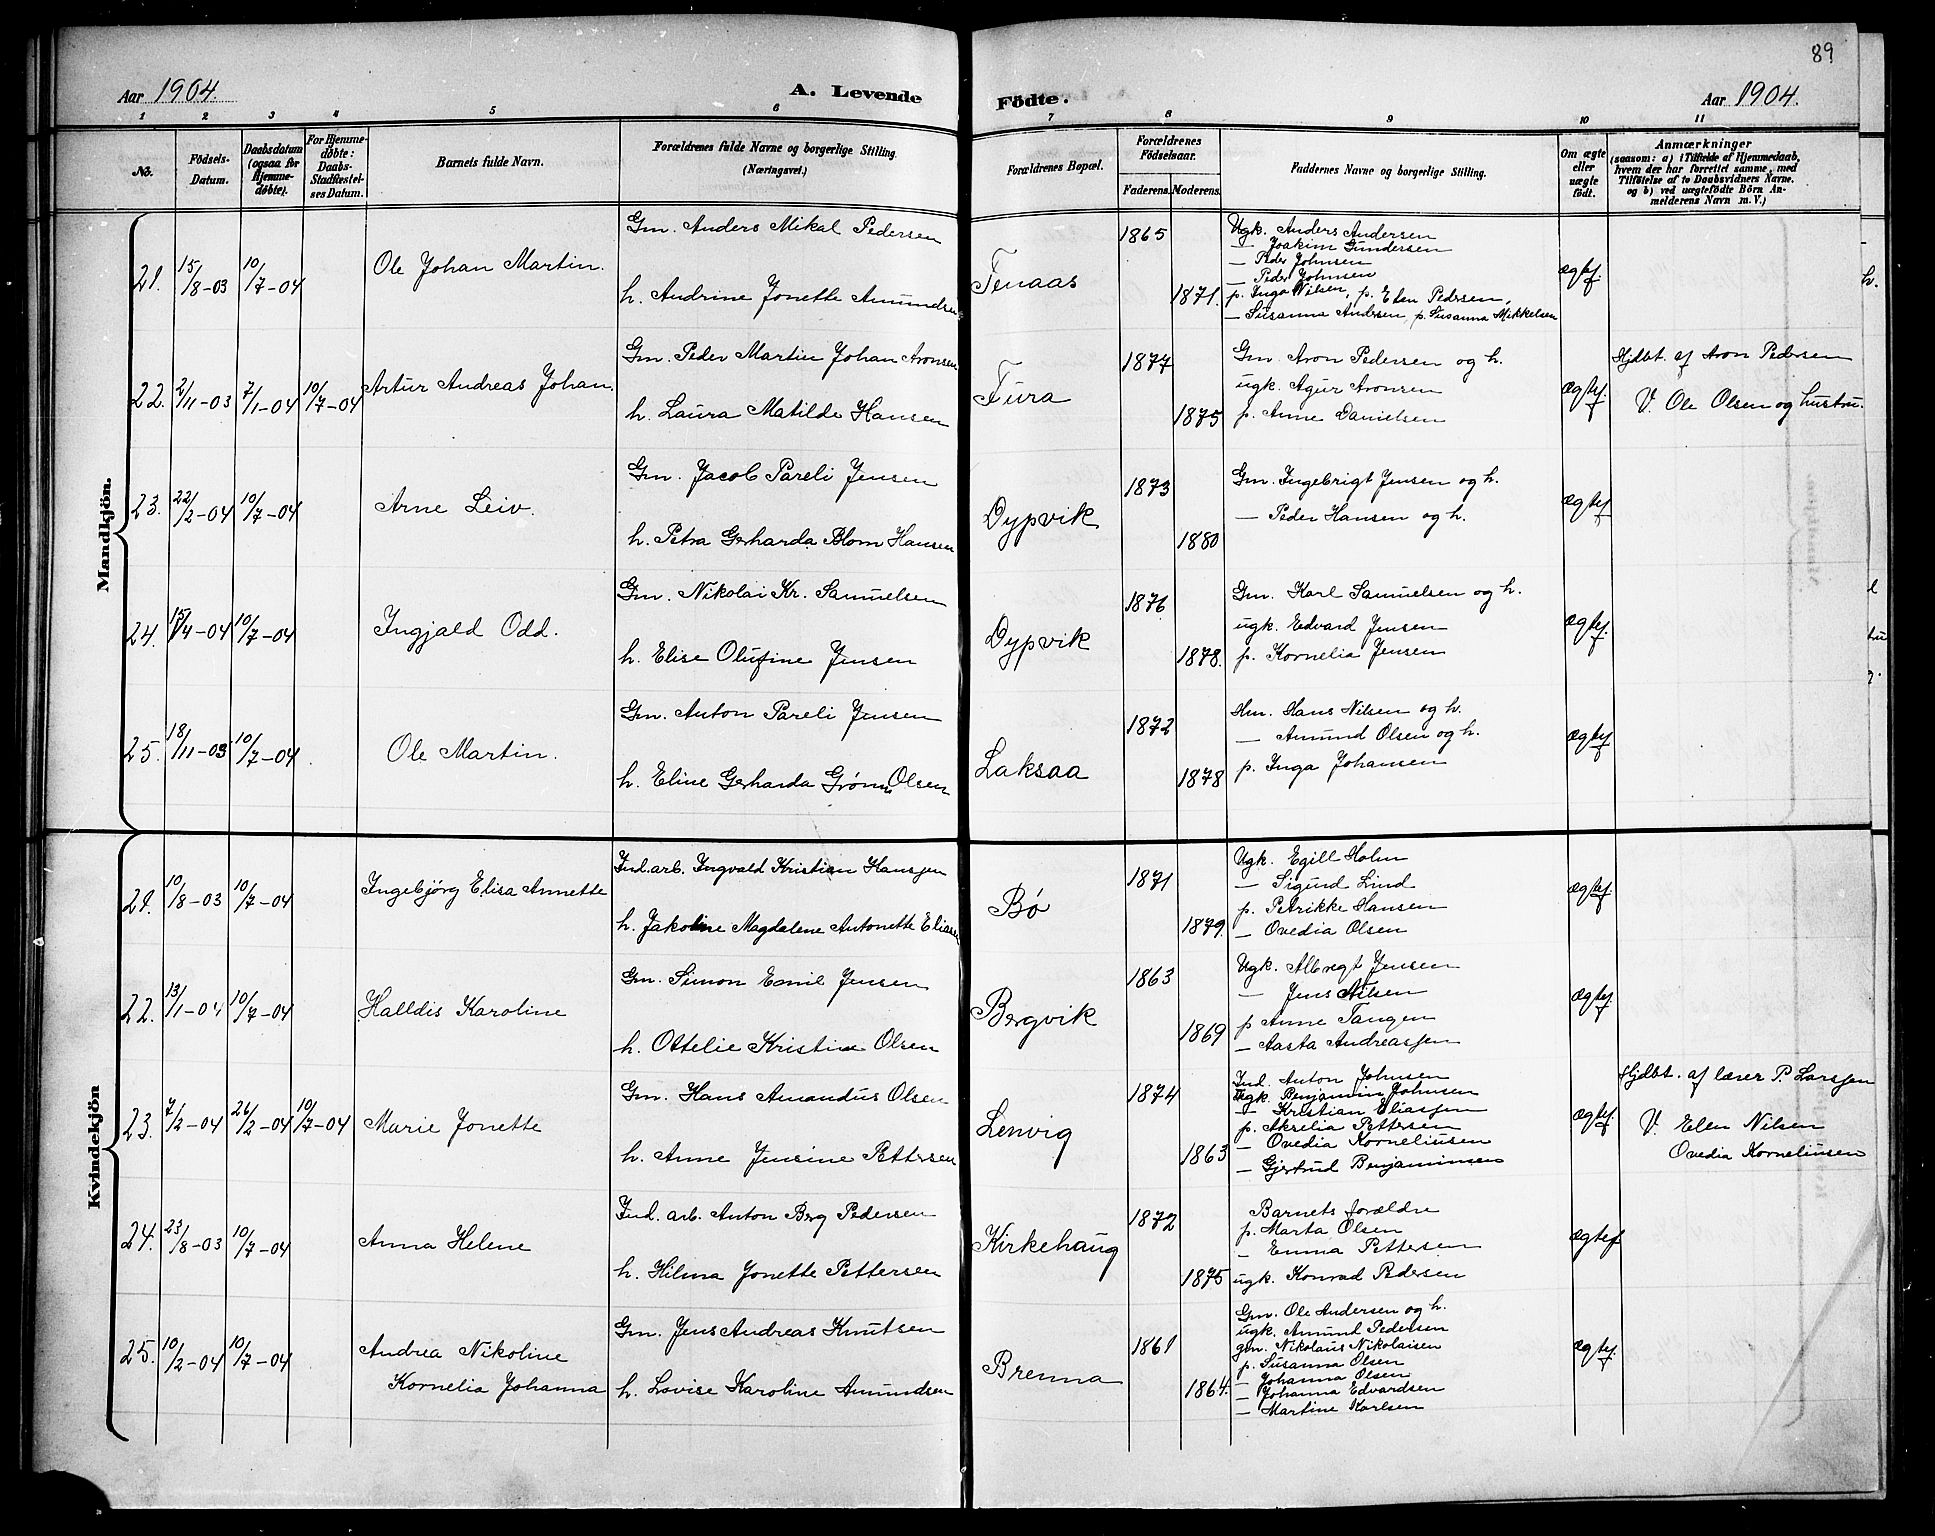 89
Aar 1904.
A. Levende Födte.
Aar 1904.
1 2 3 4 5 6 7 8 9 10 11
No.
Födsels-Datum.
Daabsdatum (ogsaa for Hjemmedøbte).
For Hjemmedøbte: Daabs-Stadfestelses Datum.
Barnets fulde Navn.
Forældrenes fulde Navne og borgerlige Stilling. (Næringsvei.)
Forældrenes Bopæl.
Forældrenes Födselsaar.
Faderens. Moderens.
Faddernes Navne og borgerlige Stilling.
Om ægte eller uægte födt.
Anmærkninger
(saasom: a) i Tilfælde af Hjemmedaab,
hvem der har forrettet samme, med
Tilföielse af to Daabsvidners Navne.
og b) ved uægtefödte Börn An-
melderens Navn m. V.)
Mandkjön.
21. 15/8-03 10/7-04 Ole Johan Martin.
Gm. Anders Mikal Pedersen
h. Andrine Jonette Amundsen
Tenaas
1865
1871.
Ugk. Anders Andersen
— Joakim Gundersen
— Peder Johnsen
— Peder Johnsen
p. Inga Nilsen, p. Elen Pedersen,
— Susanna Andersen, p. Susanna Mikkelsen
ægtef.
22. 2/11-03 7/1-04 10/7-04 Artur Andreas Johan.
Gm. Peder Martin Johan Aronsen
h. Laura Matilde Hansen
Fura
1877
1875
Gm. Aron Pedersen og h.
ugk. Agur Aronsen
p. Anne Danielsen
ægtef.
Hjdbt. af Aron Pedersen
V. Ole Olsen og hustru.
23. 22/2-04 10/7-04 Arne Leiv.
Gm. Jacob Pareli Jensen
h. Petra Gerharda Blom Hansen
Dypvik
1873
1880
Gm. Ingebrigt Jensen og h.
— Peder Hansen og h.
ægtef
24. 15/4-04 10/7-04 Ingjald Odd.
Gm. Nikolai Kr. Samuelsen
h. Elise Olufine Jensen
Dypvik
1876
1878.
Gm. Karl Samuelsen og h.
ugk. Edvard Jensen
p. Kornelia Jensen
ægtef.
25. 18/11-03 10/7-04 Ole Martin.
Gm. Anton Pareli Jensen
h. Eline Gerharda Grønn Olsen
Laksaa
1872
1878
Hm. Hans Nilsen og h.
— Amund Olsen og h.
p. Inga Johansen
ægtef
Kvindekjön
21. 10/8-03 10/7-04 Ingebjörg Elisa Annette
Ind. arb. Ingvald Kristian Hanssen
h. Jakobine Magdalene Antonette Eliasen
Bø
1871
1879.
Ugk. Egill Holm
— Sigurd Lind
p. Petrikke Hansen
— Ovedia Olsen
ægtef.
22. 13/1-04 10/7-04 Halldis Karoline
Gm. Simon Emil Jensen
h. Ottelie Kristine Olsen
Bergvik
1863
1869
Ugk. Albregt Jensen
— Jens Nilsen
p Anne Tangen
— Aasta Andreassen
ægtef.
23. 7/2-04 26/2-04 10/7-04 Marie Jonette
Gm. Hans Amandus Olsen
h. Anne Jensine Pettersen
Lenvig
1874
1863
Ind. Anton Johnsen
Ugk. Benjamin Johnsen
— Kristian Eliassen
p. Akrelia Pettersen
— Ovedia Korneliusen
— Gjertrud Benjaminsen
ægtef.
Hjdbt. af lærer P. Larssen
V. Elen Nilsen
Ovedia Korneliusen
24. 23/8-03 10/7-04 Anna Helene
Ind. arb. Anton Berg Pedersen
h. Hilma Jonette Pettersen
Kirkehaug
1872
1875
Barnets forældre
p. Marta Olsen
— Emma Pettersen
ugk. Konrad Pedersen
ægtef
25. 10/2-04 10/7-04 Andrea Nikoline
Kornelia Johanna
Gm. Jens Andreas Knutsen
h. Lovise Karoline Amundsen
Brenna
1861
1864.
Gm. Ole Andersen og h.
ugk. Amund Pedersen
gm. Nikolaus Nikolaisen
p. Susanna Olsen
— Johanna Olsen
— Johanna Edvardsen
— Martine Karlsen
ægtef.